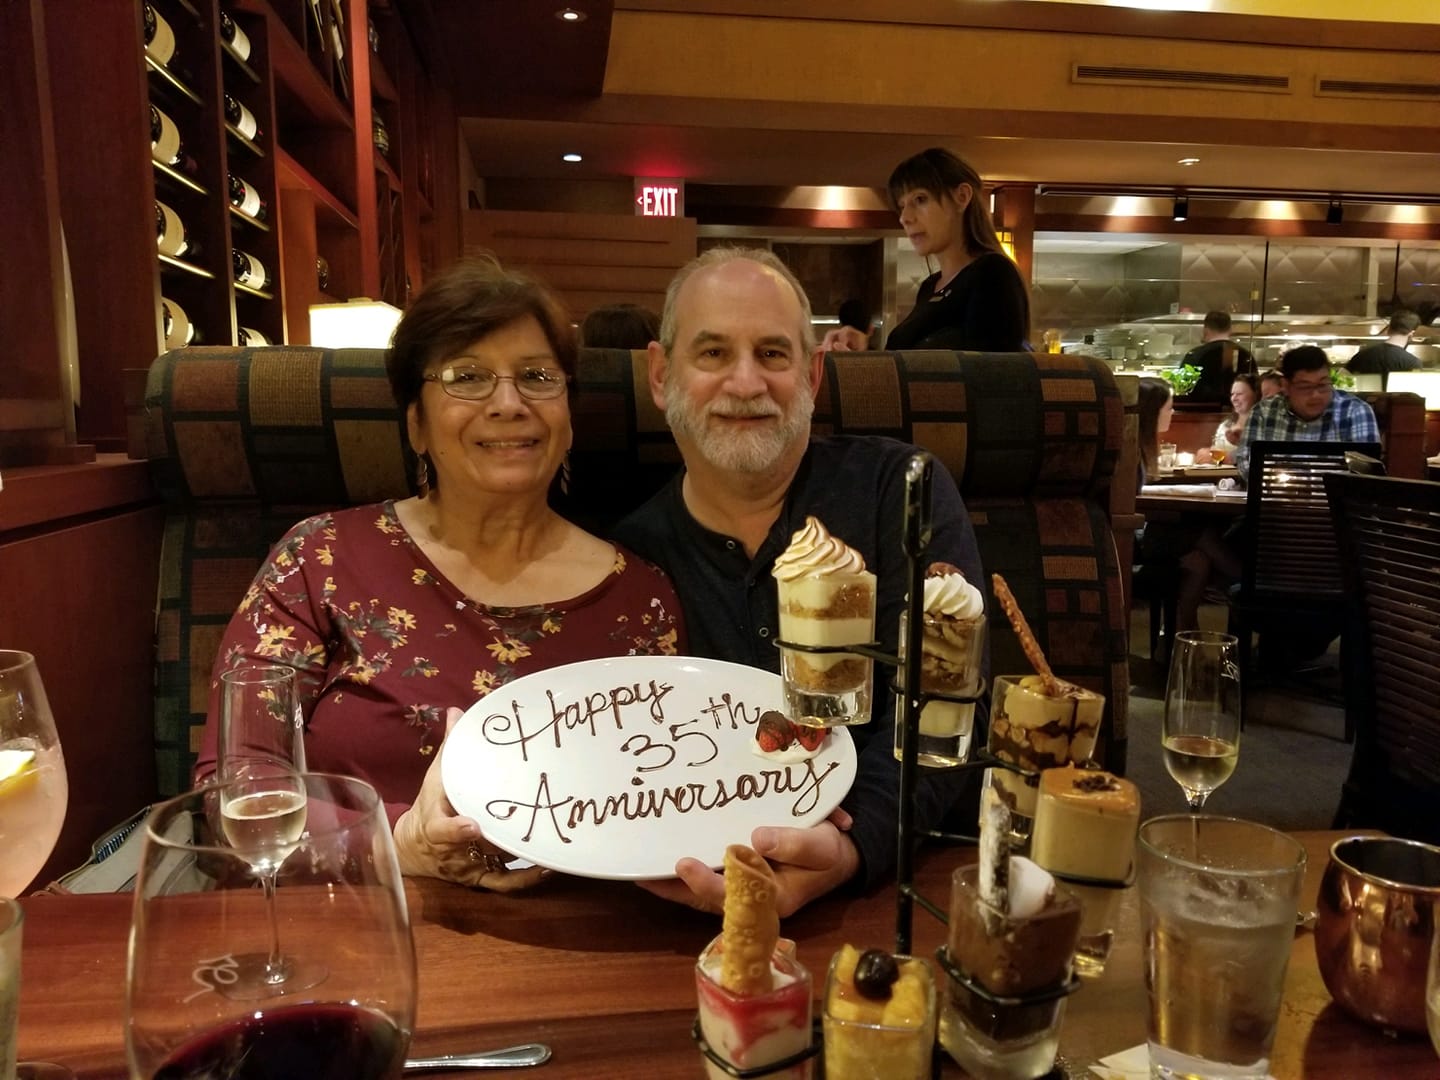 EXIT
Happy
35th
Anniversary